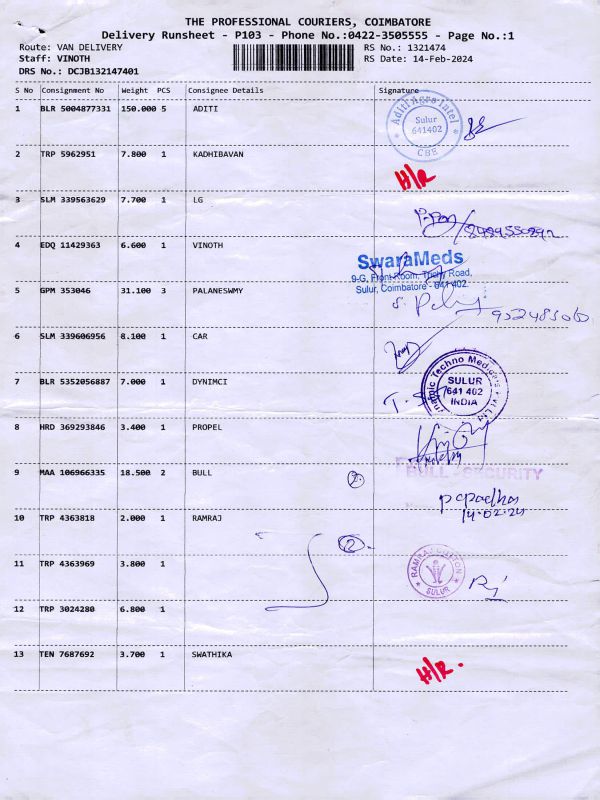 THE PROFESSIONAL COURIERS, COIMBATORE
Delivery Runsheet - P103 - Phone No.:0422-3505555 - Page No.:1
Route: VAN DELIVERY RS No.: 1321474
Staff: VINOTH RS Date: 14-Feb-2024
DRS No.: DCJB132147401
S No Consignment No Weight PCS Consignee Details Signature
1 BLR 5004877331 150.000 5 ADITI
Aditi Agro Intel
Sulur
641402
CBE
2 TRP 5962951 7.800 1 KADHIBAVAN
H/R
3 SLM 339563629 7.700 1 LG
4 EDQ 11429363 6.600 1 VINOTH
SwaraMeds
9-G, Front Room, Trichy Road,
Sulur, Coimbatore - 641 402
5 GPM 353046 31.100 3 PALANESWMY
6 SLM 339606956 8.100 1 CAR
7 BLR 5352056887 7.000 1 DYNIMCI
SULUR
641 402
INDIA
8 HRD 369293846 3.400 1 PROPEL
9 MAA 106966335 18.500 2 BULL
2
BULL SECURITY
14.02.24
10 TRP 4363818 2.000 1 RAMRAJ
2
11 TRP 4363969 3.800 1
RAMRAJ COTTON
SULUR
12 TRP 3024280 6.800 1
13 TEN 7687692 3.700 1 SWATHIKA
H/R.